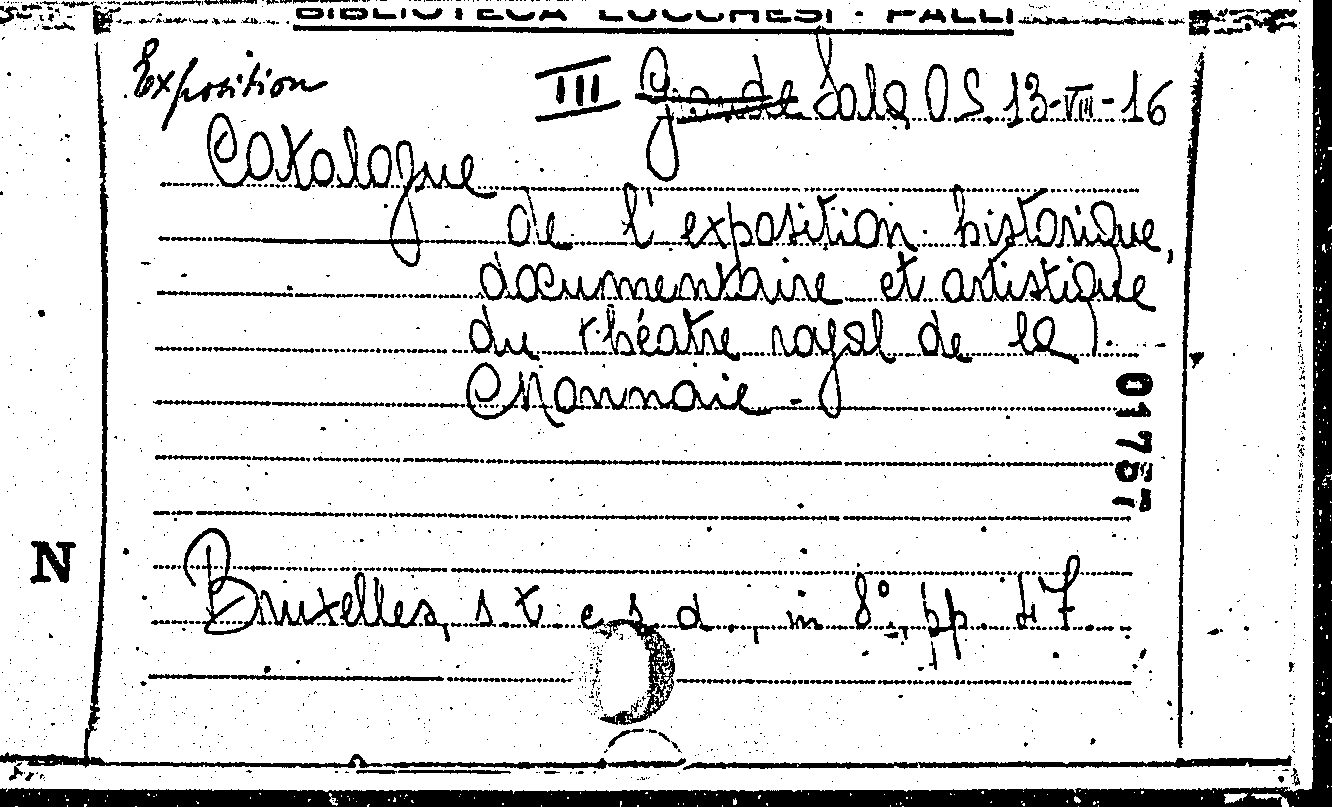 BIBLIOTECA LUCCHESI - PALLI
Exposition
III Grande Sala O S. 13-VIII-16
Catalogue
de l'exposition historique,
documentaire et artistique
du théatre royal de la
Monnaie -
01757
N
Bruxelles, s. t. e s. d., in 8°., pp. 47.